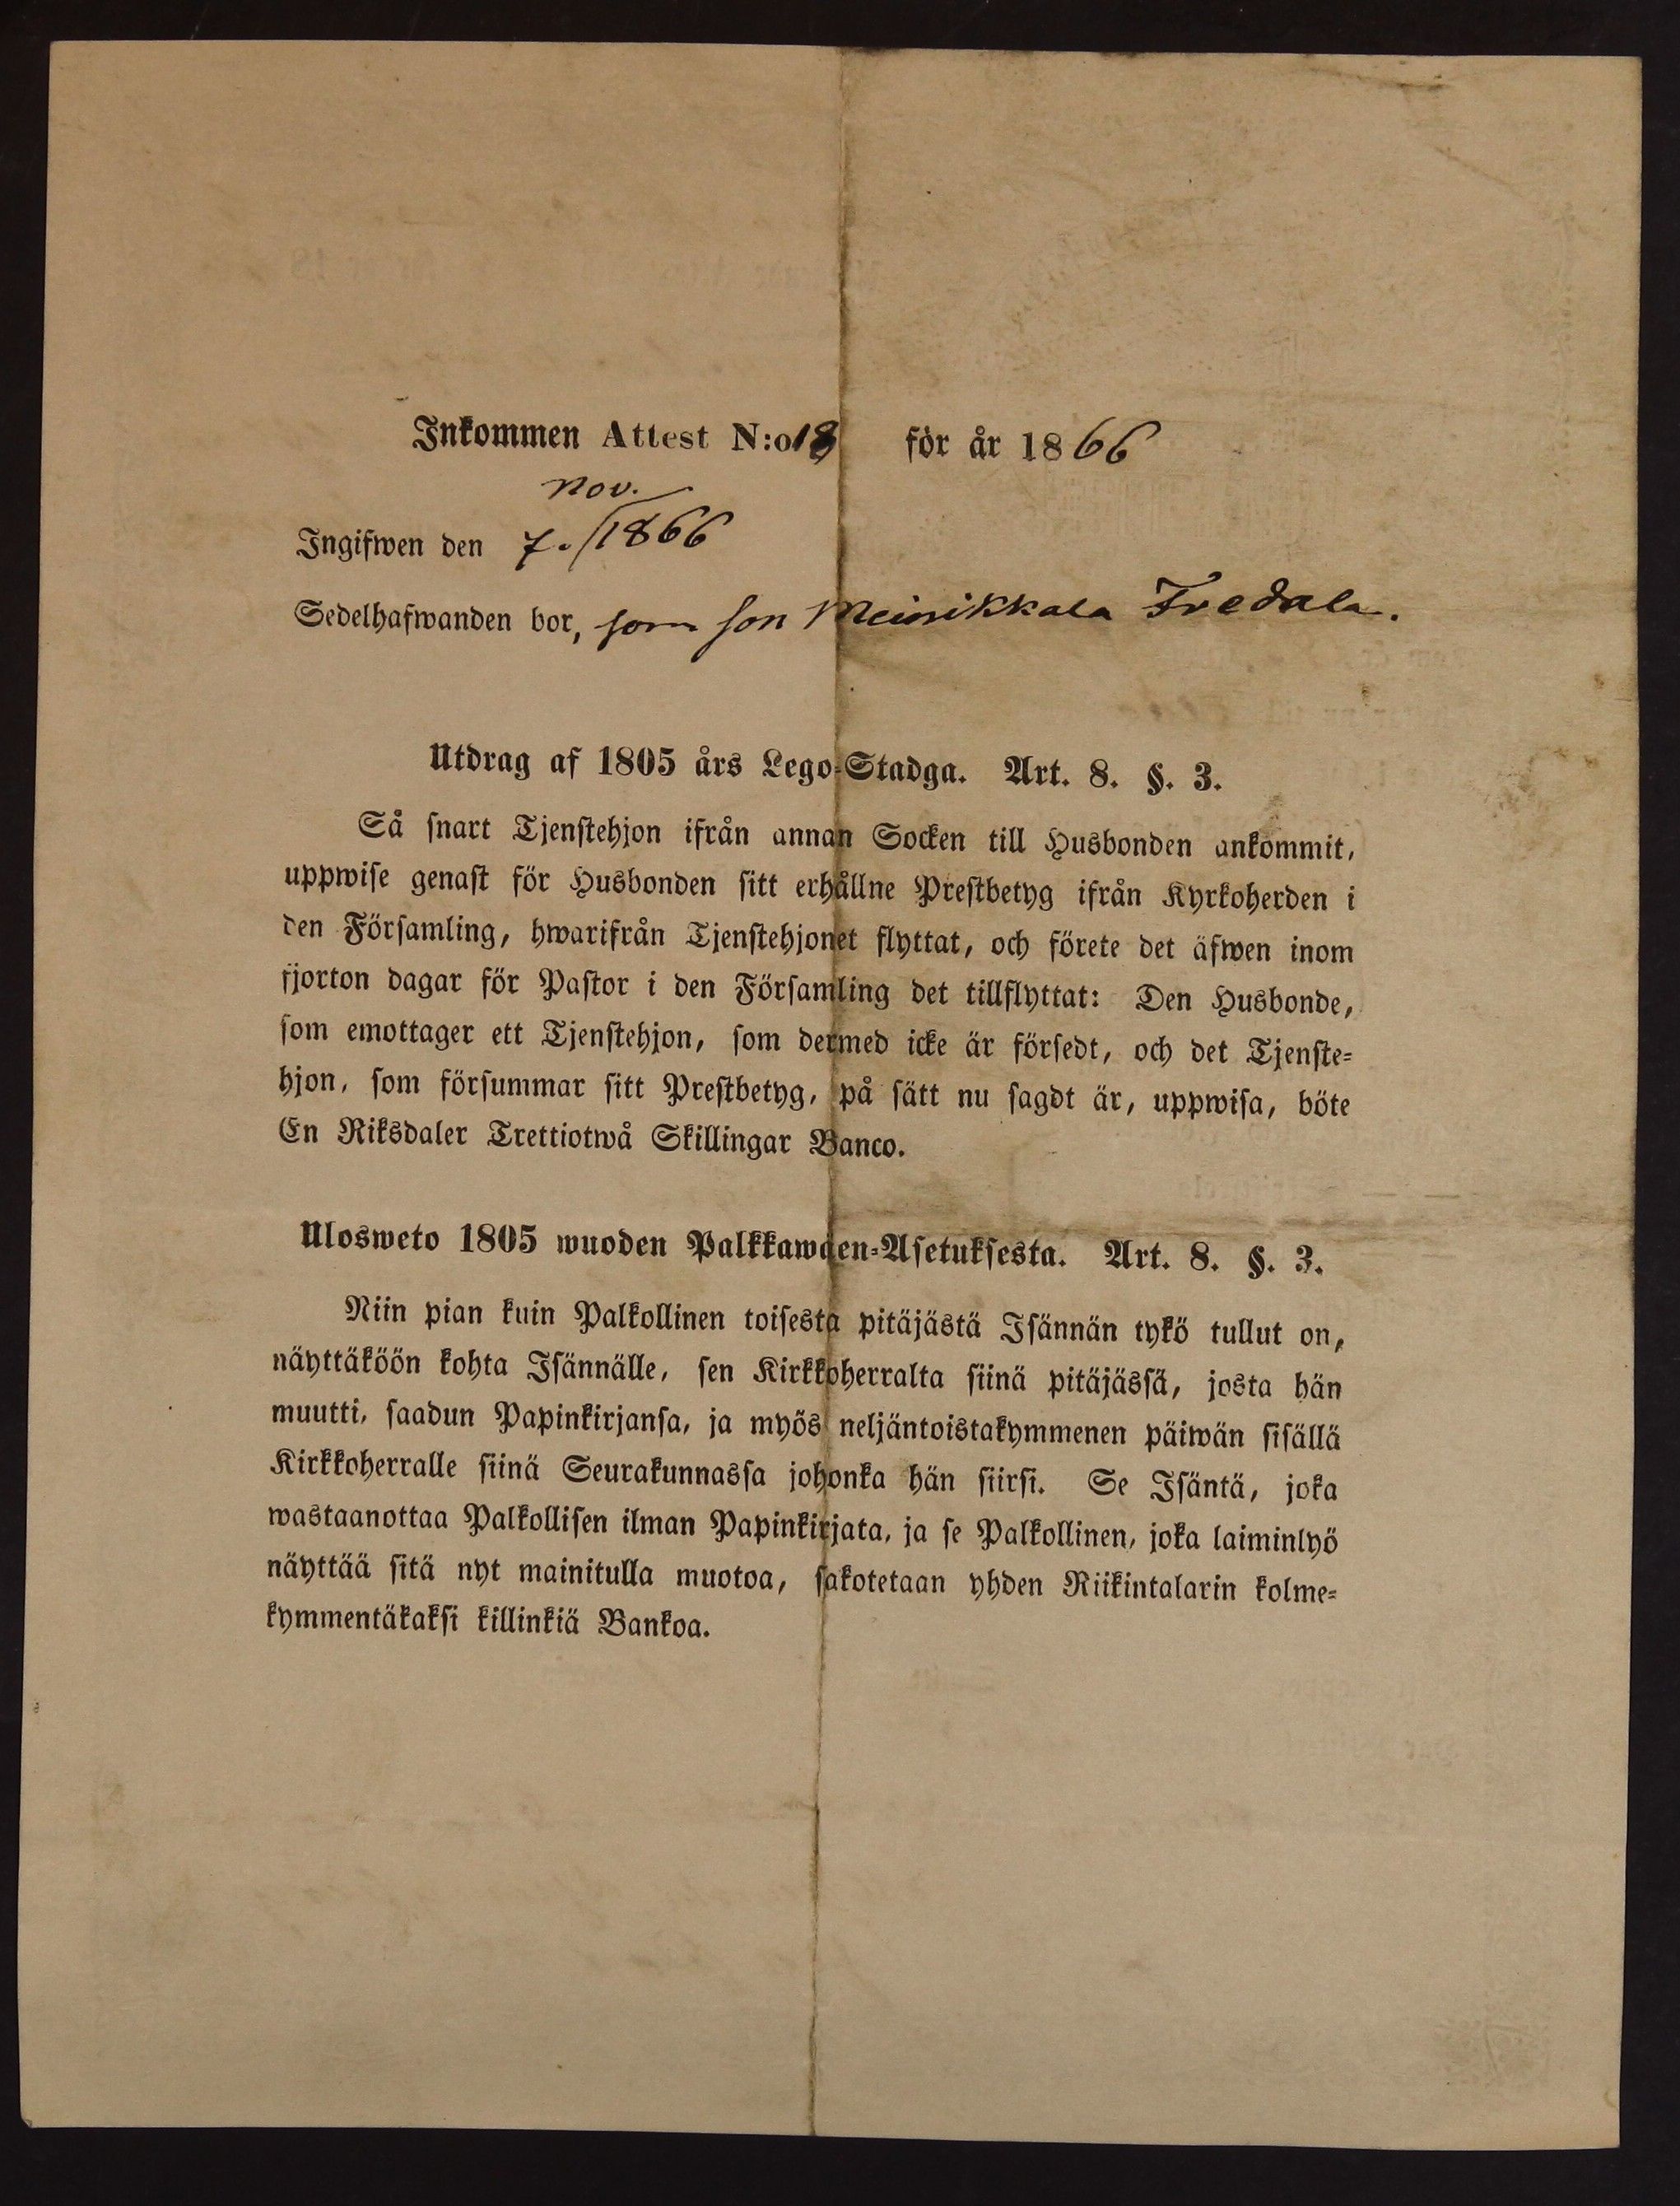 Inkommen Attest N:o 18 för år 1866
nov.
Ingifwen den 7. /1866
Sedelhafwanden bor, som son Meinikkala Fredala.
Utdrag af 1805 års Lego-Stadga. Art. 8. §. 3.
Så snart Tjenstehjon ifrån annan Socken till Husbonden ankommit,
uppwise genast för Husbonden sitt erhållne Prestbetyg ifrån Kyrkoherden i
den Församling, hwarifrån Tjenstehjonet flyttat, och förete det äfwen inom
fjorton dagar för Pastor i den Församling det tillflyttat: Den Husbonde,
som emottager ett Tjenstehjon, som dermed icke är försedt, och det Tjenste-
hjon, som försummar sitt Prestbetyg, på sätt nu sagdt är, uppwisa, böte
En Riksdaler Trettiotwå Skillingar Banco.
Ulosweto 1805 wuoden Palkkawäen-Asetuksesta. Art. 8. §. 3.
Niin pian kuin Palkollinen toisesta pitäjästä Isännän tykö tullut on,
näyttäköön kohta Isännälle, sen Kirkkoherralta siinä pitäjässä, josta hän
muutti, saadun Papinkirjansa, ja myös neljäntoistakymmenen päiwän sisällä
Kirkkoherralle siinä Seurakunnassa johonka hän siirsi. Se Isäntä, joka
wastaanottaa Palkollisen ilman Papinkirjata, ja se Palkollinen, joka laiminlyö
näyttää sitä nyt mainitulla muotoa, sakotetaan yhden Riikintalarin kolme-
kymmentäkaksi killinkiä Bankoa.